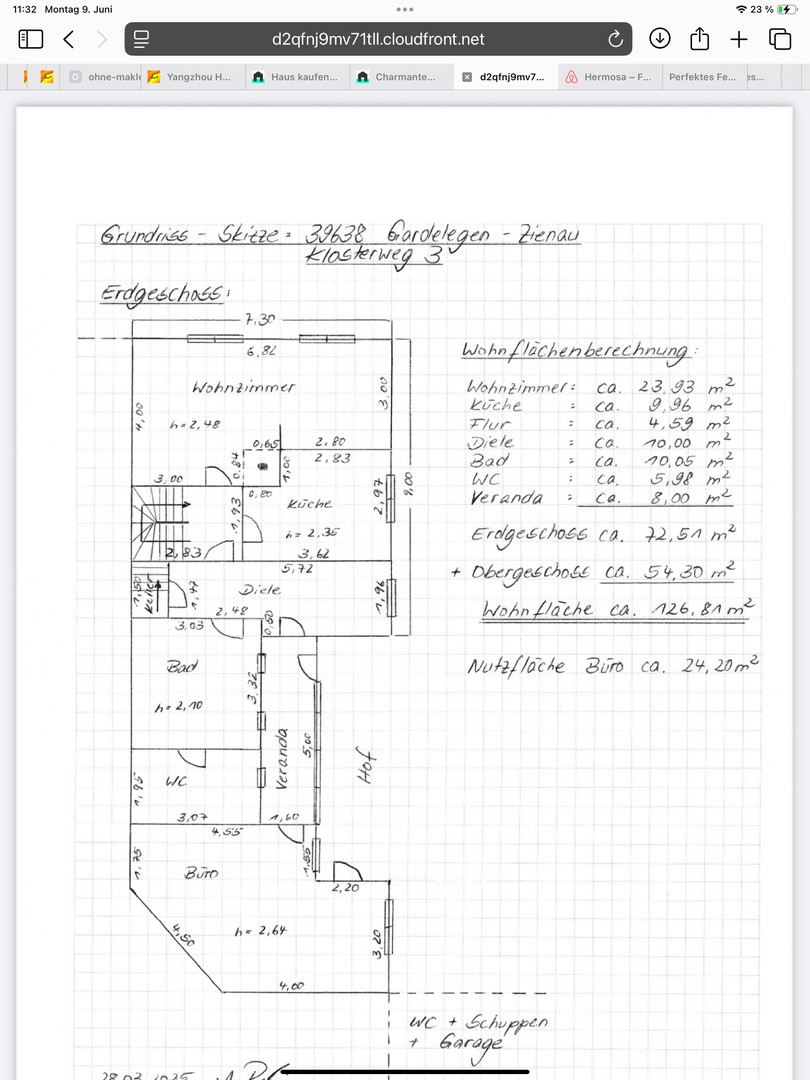 11:32 Montag 9. Juni
23 %
d2qfnj9mv71tll.cloudfront.net
ohne-makle
Yangzhou H...
Haus kaufen...
Charmante...
d2qfnj9mv7...
Hermosa – F...
Perfektes Fe...
es...
Grundriss - Skizze: 39638 Gardelegen - Zienau
Klosterweg 3
Erdgeschoss:
7,30
6,82
Wohnzimmer
4,00
3,00
h = 2,48
0,65
2,80
0,84
1,00
2,83
3,00
0,80
Küche
2,97
9,00
1,93
h = 2,35
2,83
3,62
5,72
1,50
Keller
1,47
Diele
1,96
2,48
0,50
3,03
Bad
3,32
h = 2,10
Veranda
5,00
Hof
WC
1,95
3,07
1,60
4,55
1,75
Büro
1,55
2,20
4,50
h = 2,64
3,20
4,00
Wohnflächenberechnung:
Wohnzimmer: ca. 23,93 m²
Küche : ca. 9,96 m²
Flur : ca. 4,59 m²
Diele : ca. 10,00 m²
Bad : ca. 10,05 m²
WC : ca. 5,98 m²
Veranda : ca. 8,00 m²
Erdgeschoss ca. 72,51 m²
+ Obergeschoss ca. 54,30 m²
Wohnfläche ca. 126,81 m²
Nutzfläche Büro ca. 24,20 m²
WC + Schuppen
+ Garage